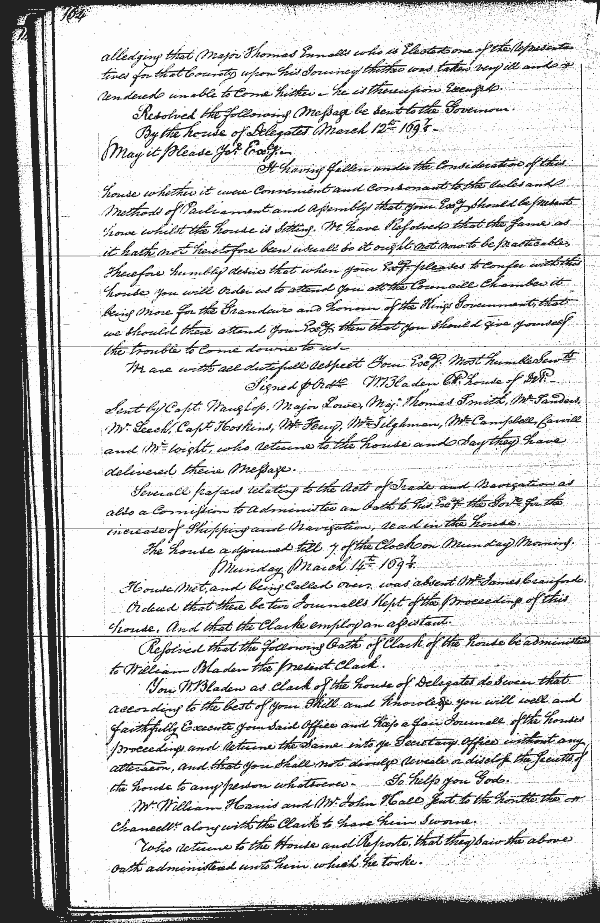 164
alledging that Major Thomas Ennalls who is Elected one of the Representa
tives for that County upon his Journey thither was taken very ill and is
rendered unable to Come hither - he is thereupon Excused.
Resolved the following Message be sent to the Governour.
By the house of Delegates March 12th 169
May it please Yor Excy.
It having fallen under the Consideration of this
house whether it were Convenient and Consonant to the Rules and
Methods of Parliament and Assembly that your Excy should be present
here whilst the house is Sitting. We have Resolved that the same as
it hath not heretofore been usuall so it ought not now to be practicable,
Therefore humbly desire that when your Excy pleases to Confer with this
house you will Order us to attend you att the Councill Chamber it
being more for the Grandure and honour of the Kings Government, that
we should there attend your Excy then that you should give yourself
the trouble to Come downe to us
We are with all dutifull respect Your Excy. Most humble Servts
Signed p Ordr W Bladen Cl. house of Del.
Sent by Capt. Major Lowe, Maj. Thomas Smith, Mr Sanders,
Mr. Leech, Capt Hoskins, Mr Mr Tilghman, Mr Campbell,
and Mr Wight, who returne to the house and Say they have
delivered their Message.
Severall papers relating to the Acts of Trade and Navigation as
also a Comission to Administer an Oath to his Excy the Govr for the
increase of Shipping and Navigation, read in the house.
The house adjourned till 7 of the Clock on Munday Morning.
Munday March 14th 169
House Met, and being Called over, was absent Mr James Craiford.
Ordered that there be two Journalls Kept of the Proceeding of this
house. And that the Clarke employ an assistant.
Resolved that the following Oath of Clark of the house be administred
to William Bladen the present Clark.
You W. Bladen as Clark of the house of Delegates do Swear that
according to the best of your Skill and Knowledge you will well and
faithfully Execute your said Office and Keep a fair Journall of the houses
proceedings and returne the Same into ye Secretary Office without any
alteration, and that you shall not divulge reveale or disclose the Secrets of
the house to any person whatsoever. So help you God.
Mr William Harris and Mr John Hall Sent to the honble the
Chancellr. along with the Clark to have him Sworne.
Who returne to the House and Reporte, that they Saw the above
Oath administred unto him, which he tooke.